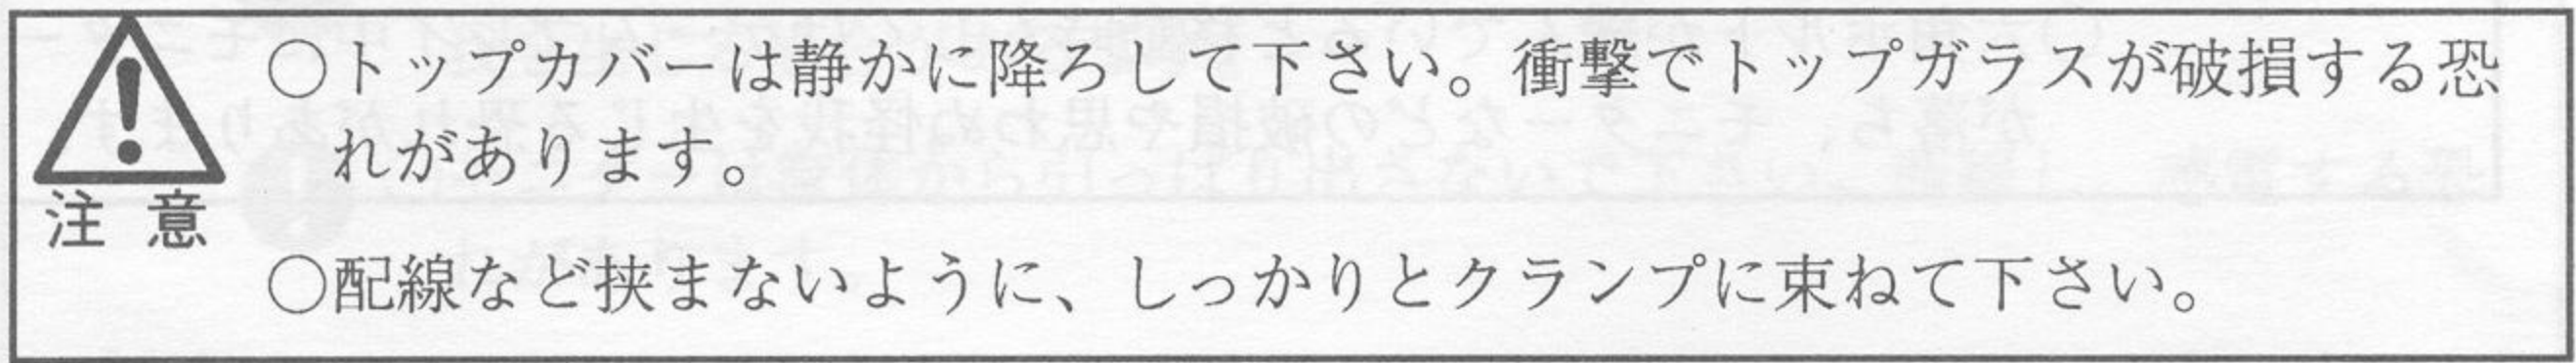 ○トップカバーは静かに降ろして下さい。衝撃でトップガラスが破損する恐
れがあります。
注 意
○配線など挟まないように、しっかりとクランプに束ねて下さい。